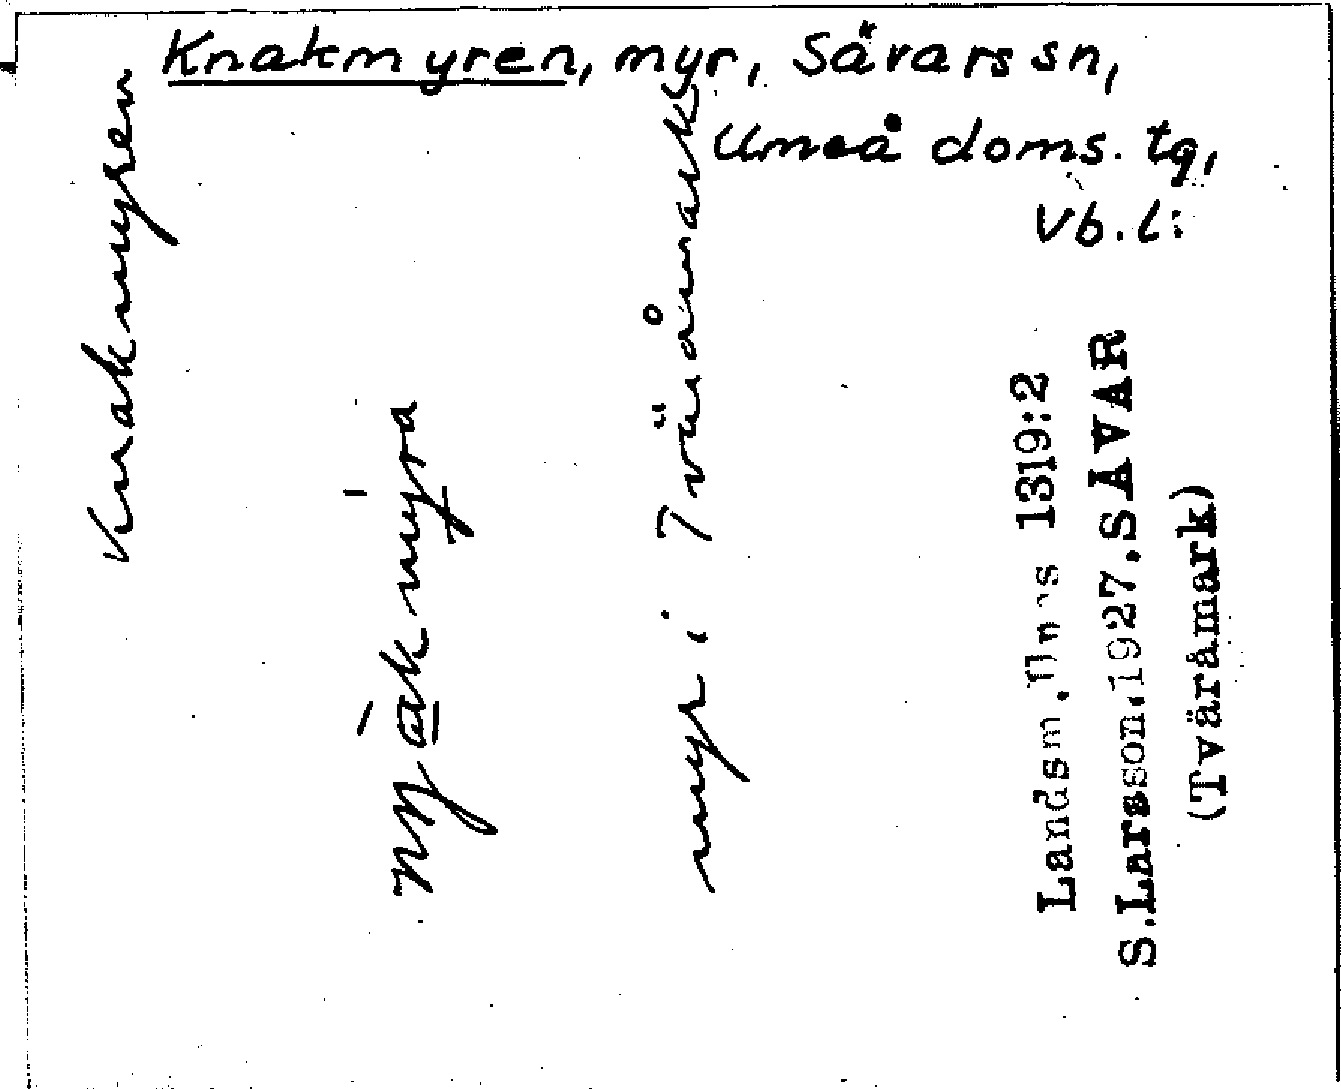 Knakmyren, myr, Sävars sn,
Umeå doms. tg,
Vb. l:
Knakmyren
myr i Tväråmark
Landsm. Upps 1319:2
S.Larsson.1927.SÄVAR
(Tväråmark)